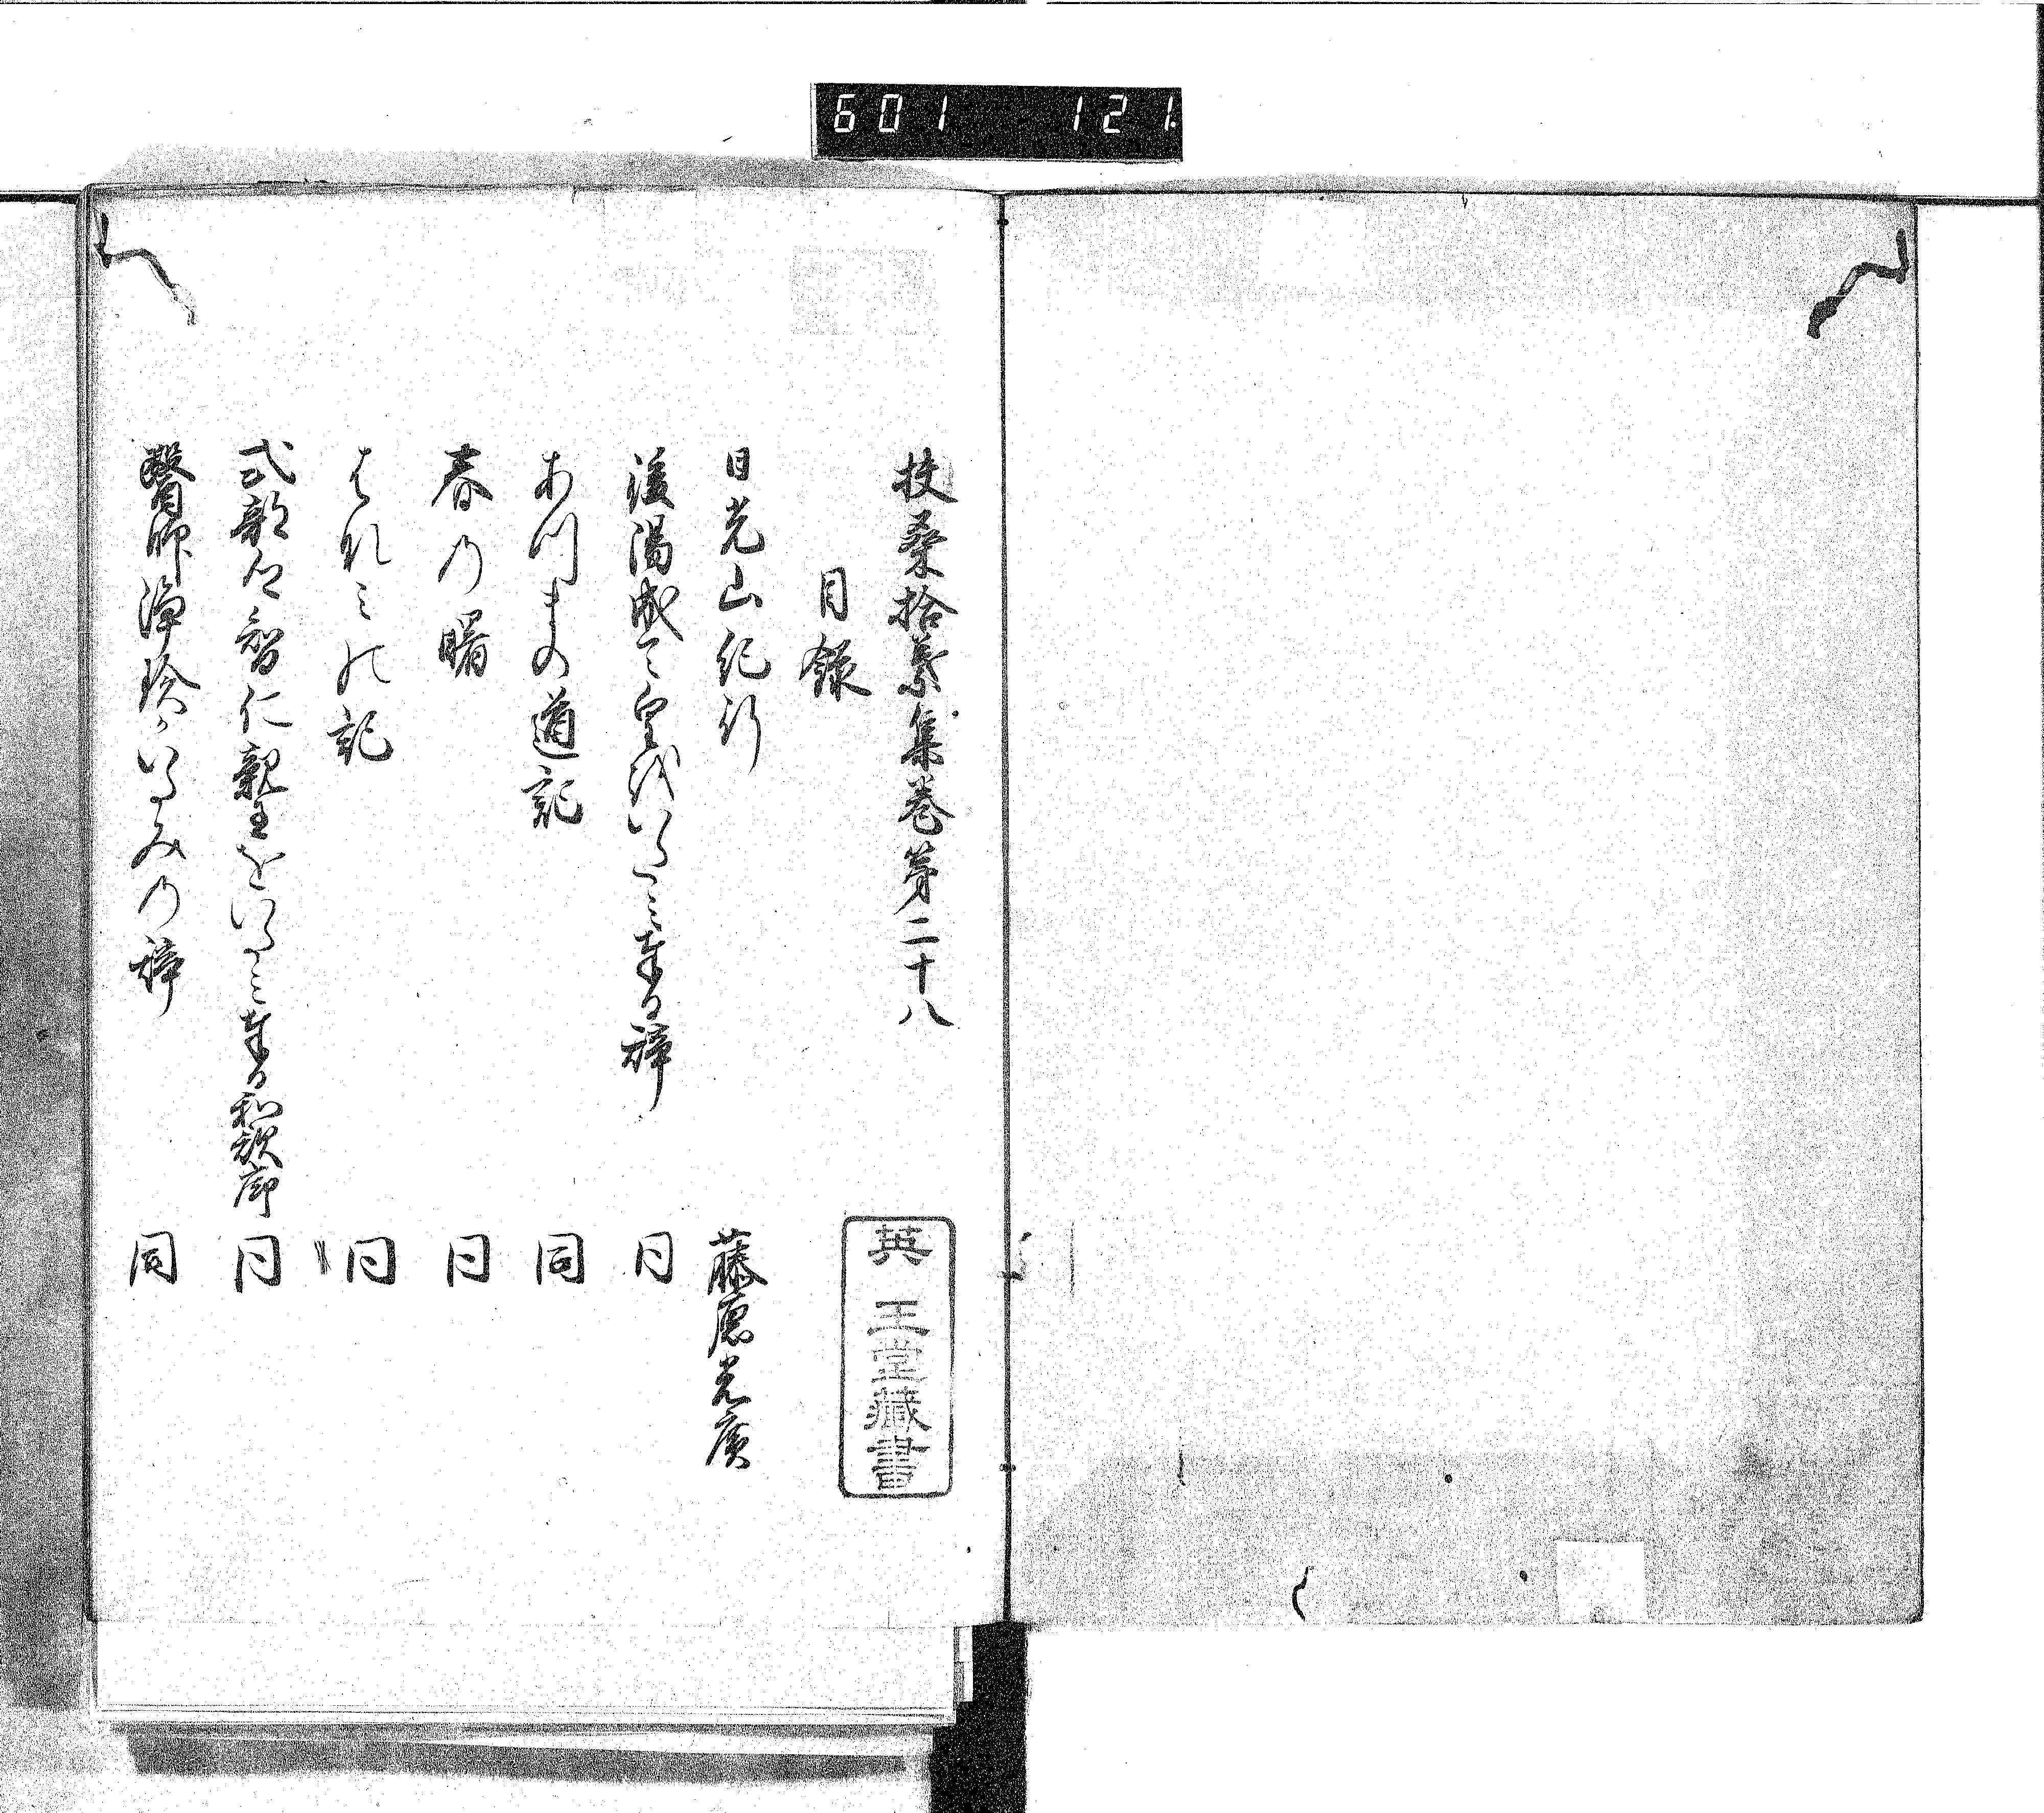 601 121
扶桑拾葉集巻第二十八
目録
日光山紀行 藤原光廣
後陽成天皇をいたミ奉る辞 同
あつまの道記 同
春の曙 同
の記 同
式部卿智仁親王をいたミ奉る和歌序 同
醫師浄珍かいたみの辞 同
英 王堂藏書